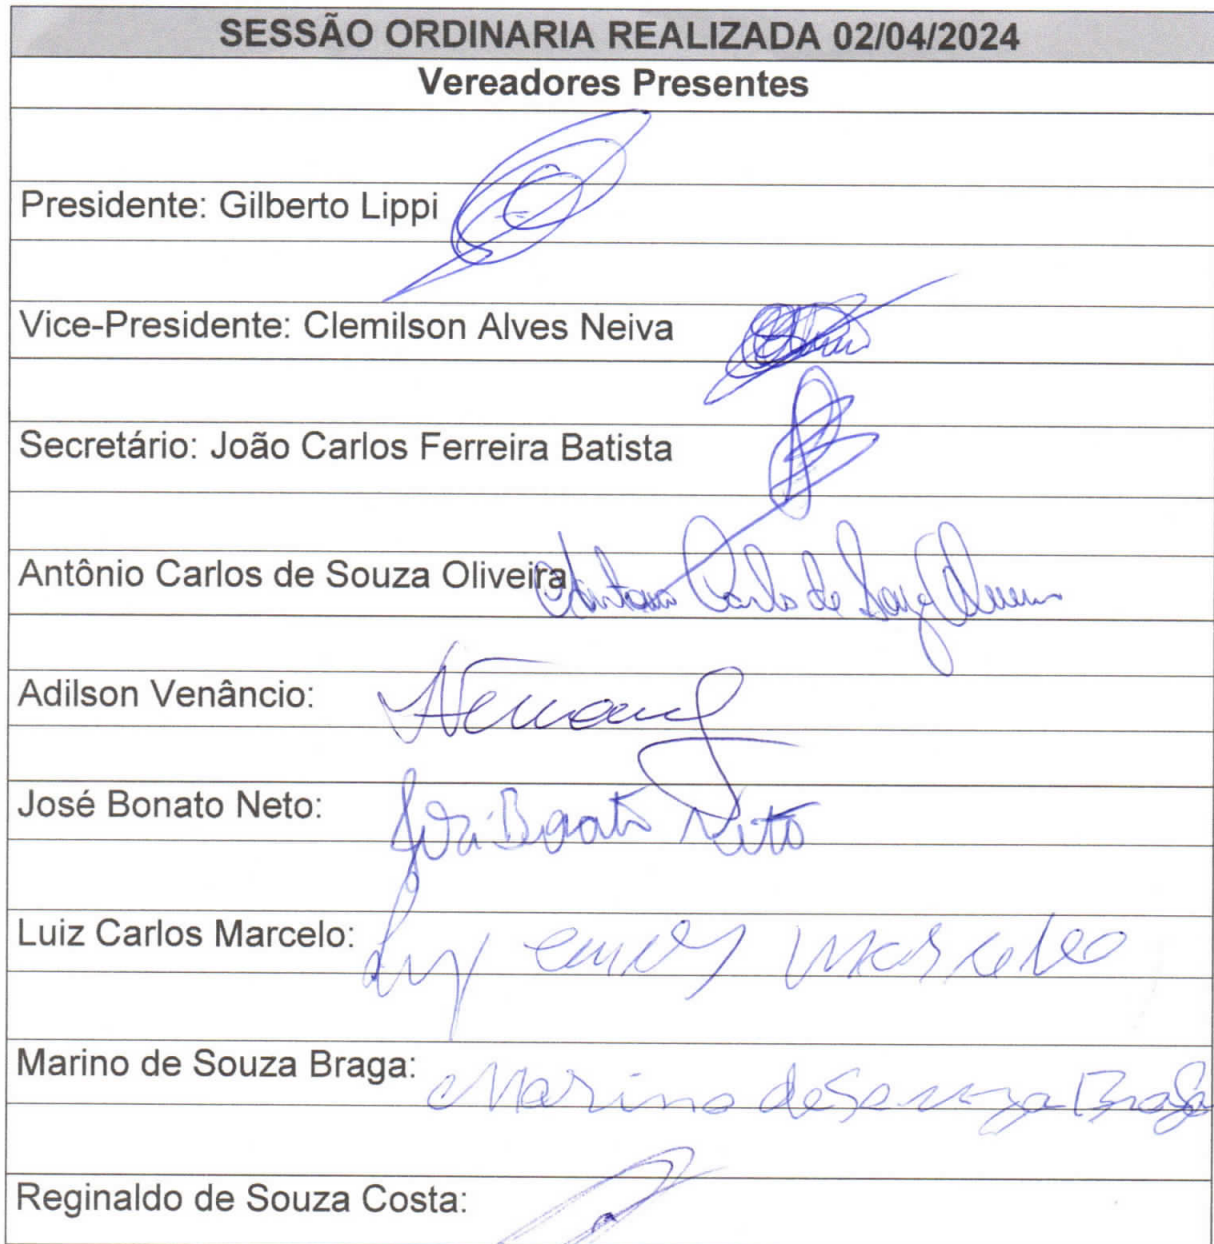 SESSÃO ORDINARIA REALIZADA 02/04/2024
Vereadores Presentes
Presidente: Gilberto Lippi
Vice-Presidente: Clemilson Alves Neiva
Secretário: João Carlos Ferreira Batista
Antônio Carlos de Souza Oliveira
Adilson Venâncio:
José Bonato Neto: José Bonato Neto
Luiz Carlos Marcelo: Luiz Carlos Marcelo
Marino de Souza Braga: Marino de Souza Braga
Reginaldo de Souza Costa: